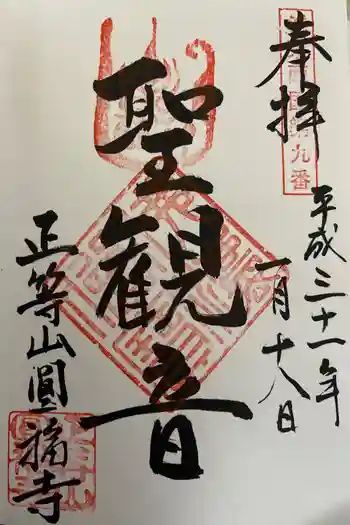 奉拝
九番
平成三十一年
一月十八日
聖観音
正等山圓福寺